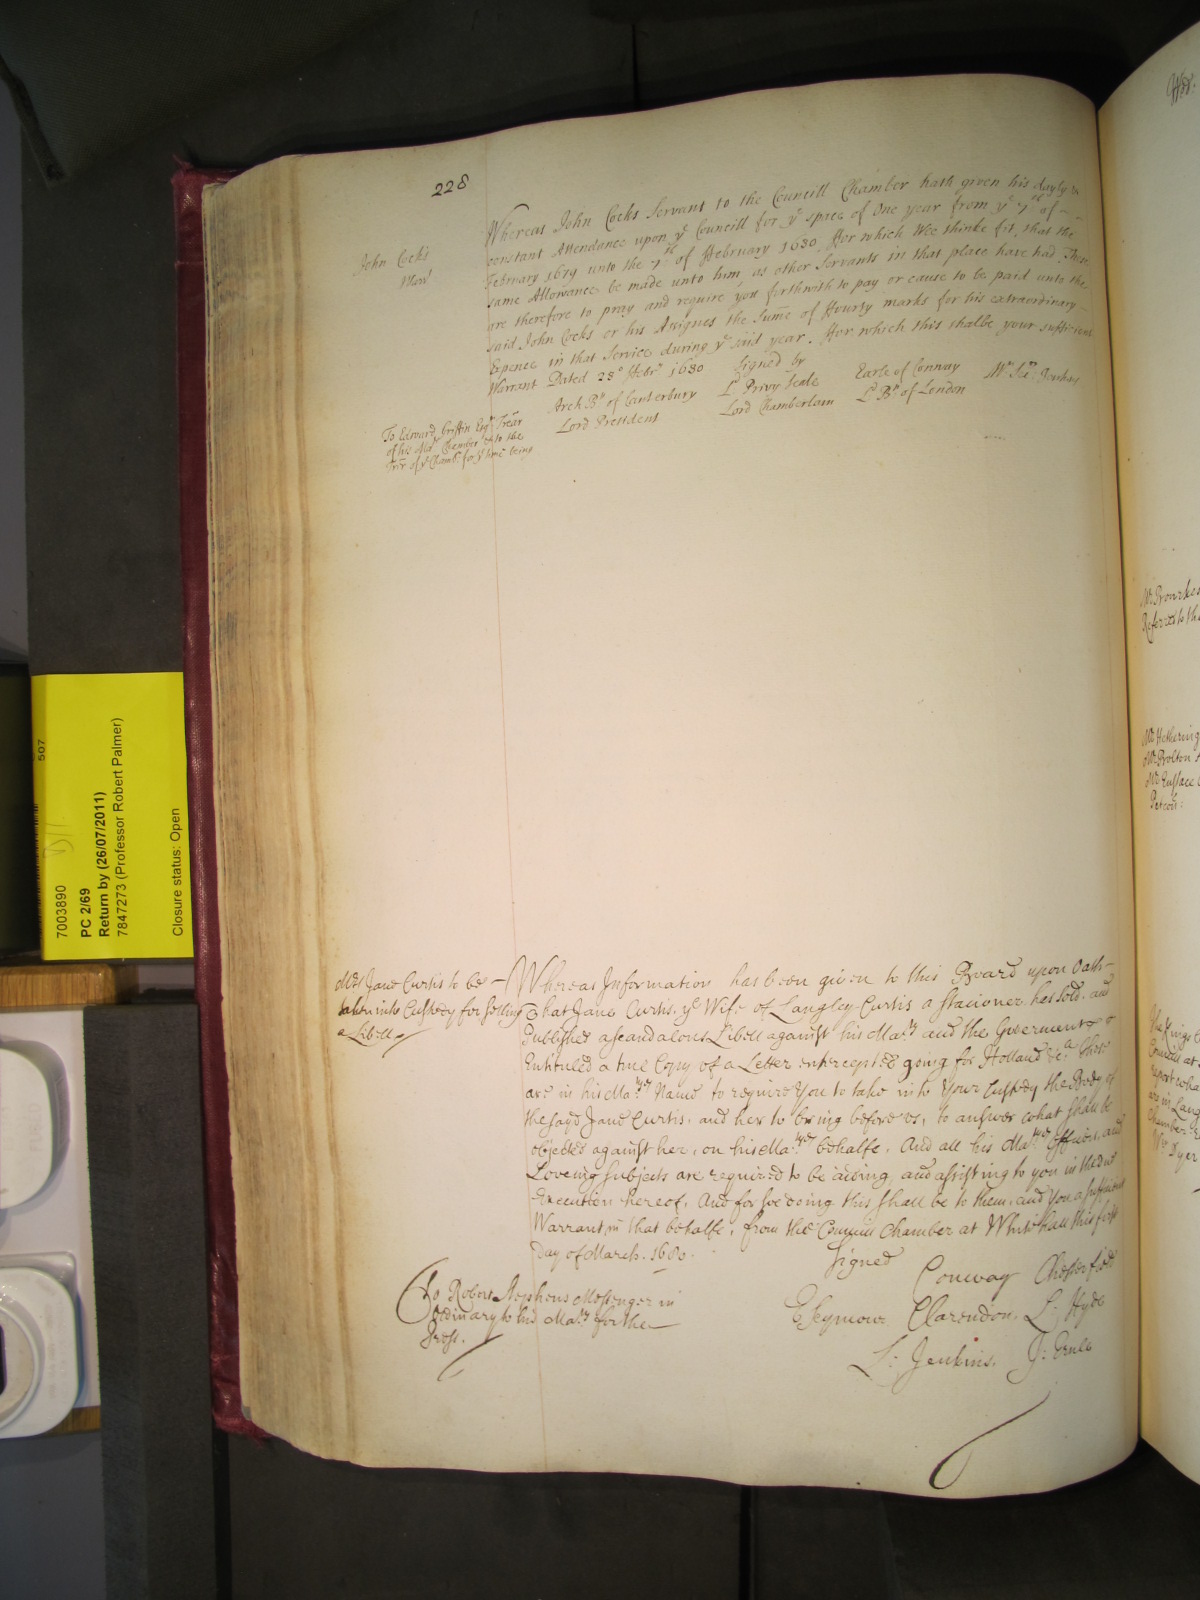 228
John Cocks
Whereas John Cocks Servant to the Councill Chamber hath given his dayly &
constant Attendance upon ye Councill for ye space of One year from ye 7th of
February 1679 unto the 7th of ffebruary 1680. ffor which Wee thinke fit, that the
same Allowance be made unto him, as other Servants in that place have had. These
are therefore to pray and require you forthwith to pay or cause to be paid unto the
said John Cocks or his Assignes the Sume of ffourty marks for his extraordinary
Expence in that Service during ye said year. ffor which this shalbe your sufficient
Warrant Dated 28o ffebr 1680 Signed by
Arch Bp of Canterbury
Lord President
Ld Privy Seale
Lord Chamberlain
Earle of Conway
Ld Bp of London
Mr Secr Jenkins
To Edward Griffin Esqr Trear
of his Maty Chamber & to the
Trer of ye Chamb. for ye time being
Mrs Jane Curtis to be
taken into Custody for selling
a Libell
Whereas Information has been given to this Board upon Oath
that Jane Curtis, ye Wife of Langley Curtis a stacioner has sold, and
Published a scandalous Libell against his Maty and the Government
Entituled a true Copy of a Letter intercepted going for Holland &ca These
are in his Mats Name to require You to take into Your Custody the Body of
the sayd Jane Curtis, and her to bring before us, to answer what shall be
objected against her, on his Mats behalfe, And all his Mats Officers, and
Loveing Subjects are required to be aiding, and assisting to you in the due
Execution hereof, And for soe doing this shall be to them, and You a sufficient
Warrant, in that behalfe, from the Councill Chamber at Whitehall this first
Day of March. 1680.
Signed
Conway Chesterfield
E Seymour Clarendon. L: Hyde
L: Jenkins. J: Ernle
To Robert Stephens Messenger in
Ordinary to his Maty for the
Press.
Mr Hethering
Mr Bolton
507
7003890
PC 2/69
Return by (26/07/2011)
7847273 (Professor Robert Palmer)
Closure status: Open